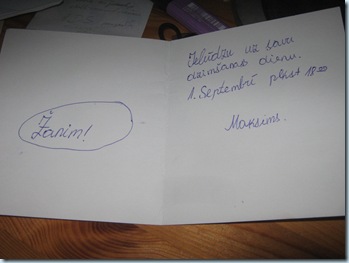 Žanim!
Ielūdzu uz savu
dzimšanas dienu.
1. Septembrī plkst 18.00
Maksims.